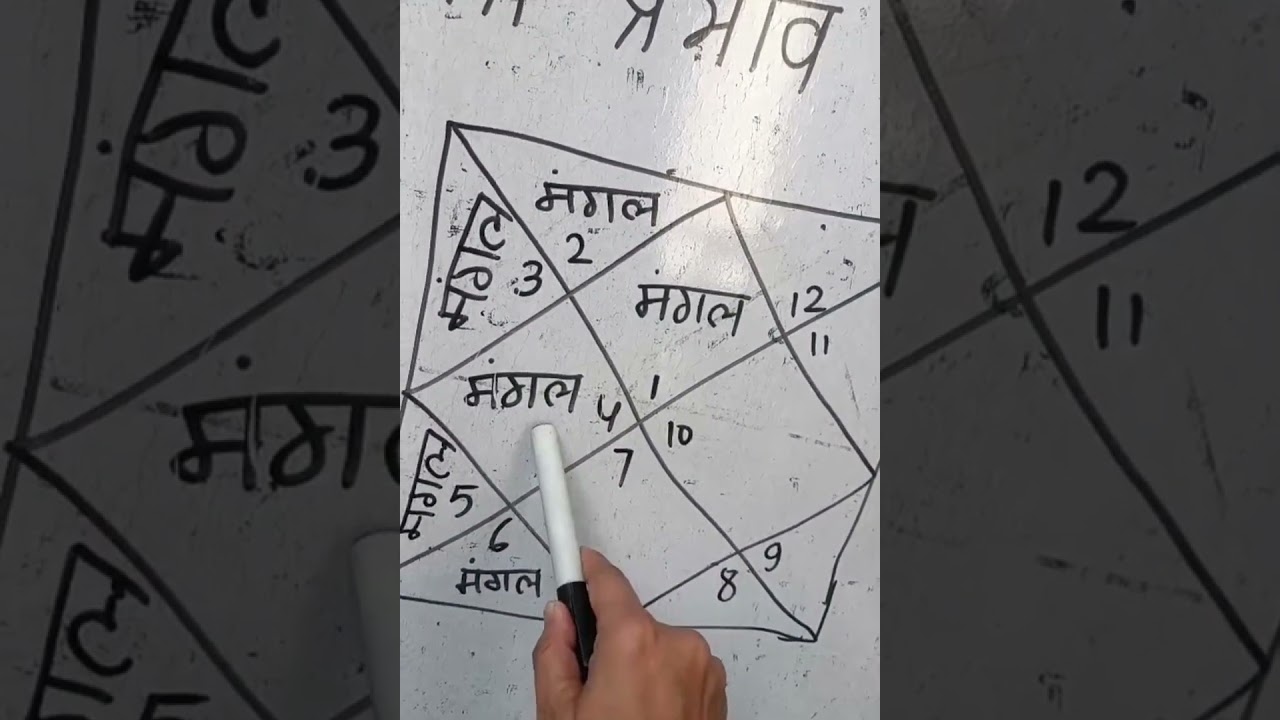 प्रभाव
मंगल
2
मंगल
3
मंगल
12
11
मंगल
4
1
10
7
मंगल
5
6
मंगल
9
8